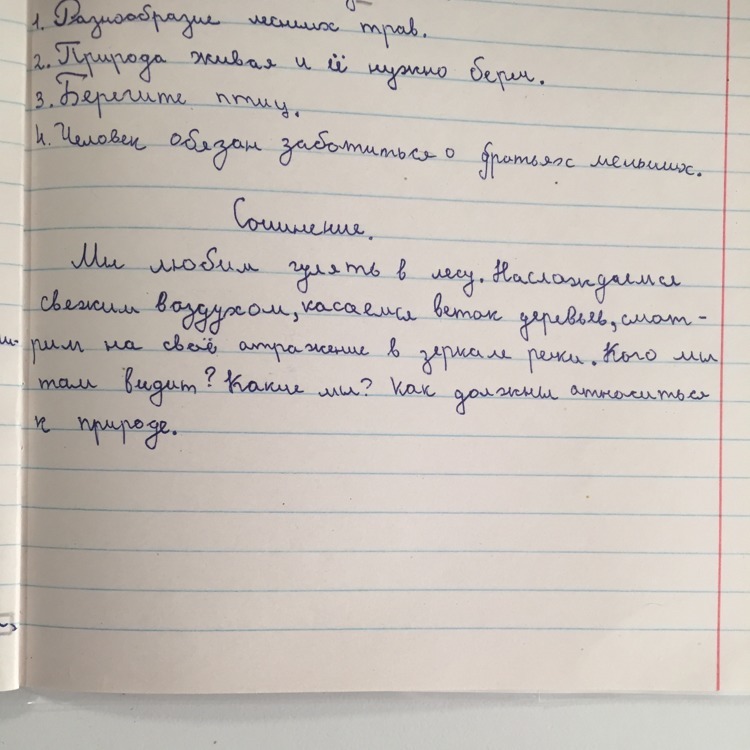 1. Разнообразие лесных трав.
2. Природа живая и её нужно беречь.
3. Берегите птиц.
4. Человек обязан заботиться о братьях меньших.
Сочинение.
Мы любим гулять в лесу. Наслаждаемся
свежим воздухом, касаемся веток деревьев, смот-
рим на своё атражение в зеркале реки. Кого мы
там видит? Какие мы? Как должны атноситься
к природе.